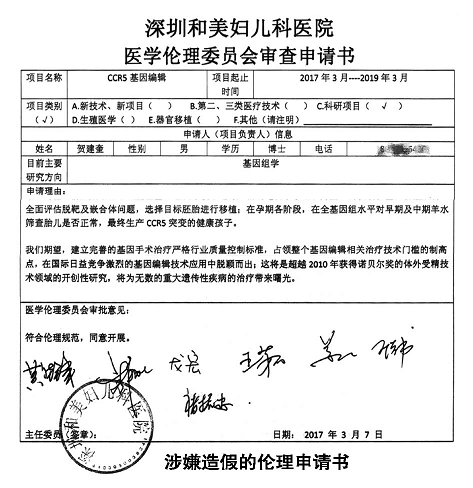 深圳和美妇儿科医院
医学伦理委员会审查申请书
项目名称 CCR5 基因编辑 项目起止时间 2017 年 3 月----2019 年 3 月
项目类别（√） A.新技术、新项目（ ） B.第二、三类医疗技术（ ） C.科研项目（ √ ）
D.生殖医学（ ） E.器官移植（ ） F.其他（请注明）
申请人（项目负责人）信息
姓名 贺建奎 性别 男 学历 博士 电话
目前主要研究方向 基因组学
申请理由：
全面评估脱靶及嵌合体问题，选择目标胚胎进行移植；在孕期各阶段，在全基因组水平对早期及中期羊水
筛查胎儿是否正常，最终生产 CCR5 突变的健康孩子。
我们期望，建立完善的基因手术治疗严格行业质量控制标准，占领整个基因编辑相关治疗技术门槛的制高
点，在国际日益竞争激烈的基因编辑技术应用中脱颖而出；这将是超越 2010 年获得诺贝尔奖的体外受精技
术领域的开创性研究，将为无数的重大遗传性疾病的治疗带来曙光。
医学伦理委员会审批意见：
符合伦理规范，同意开展。
深圳和美妇儿科医院
主任委员（签章）： 日期： 2017 年 3 月 7 日
涉嫌造假的伦理申请书